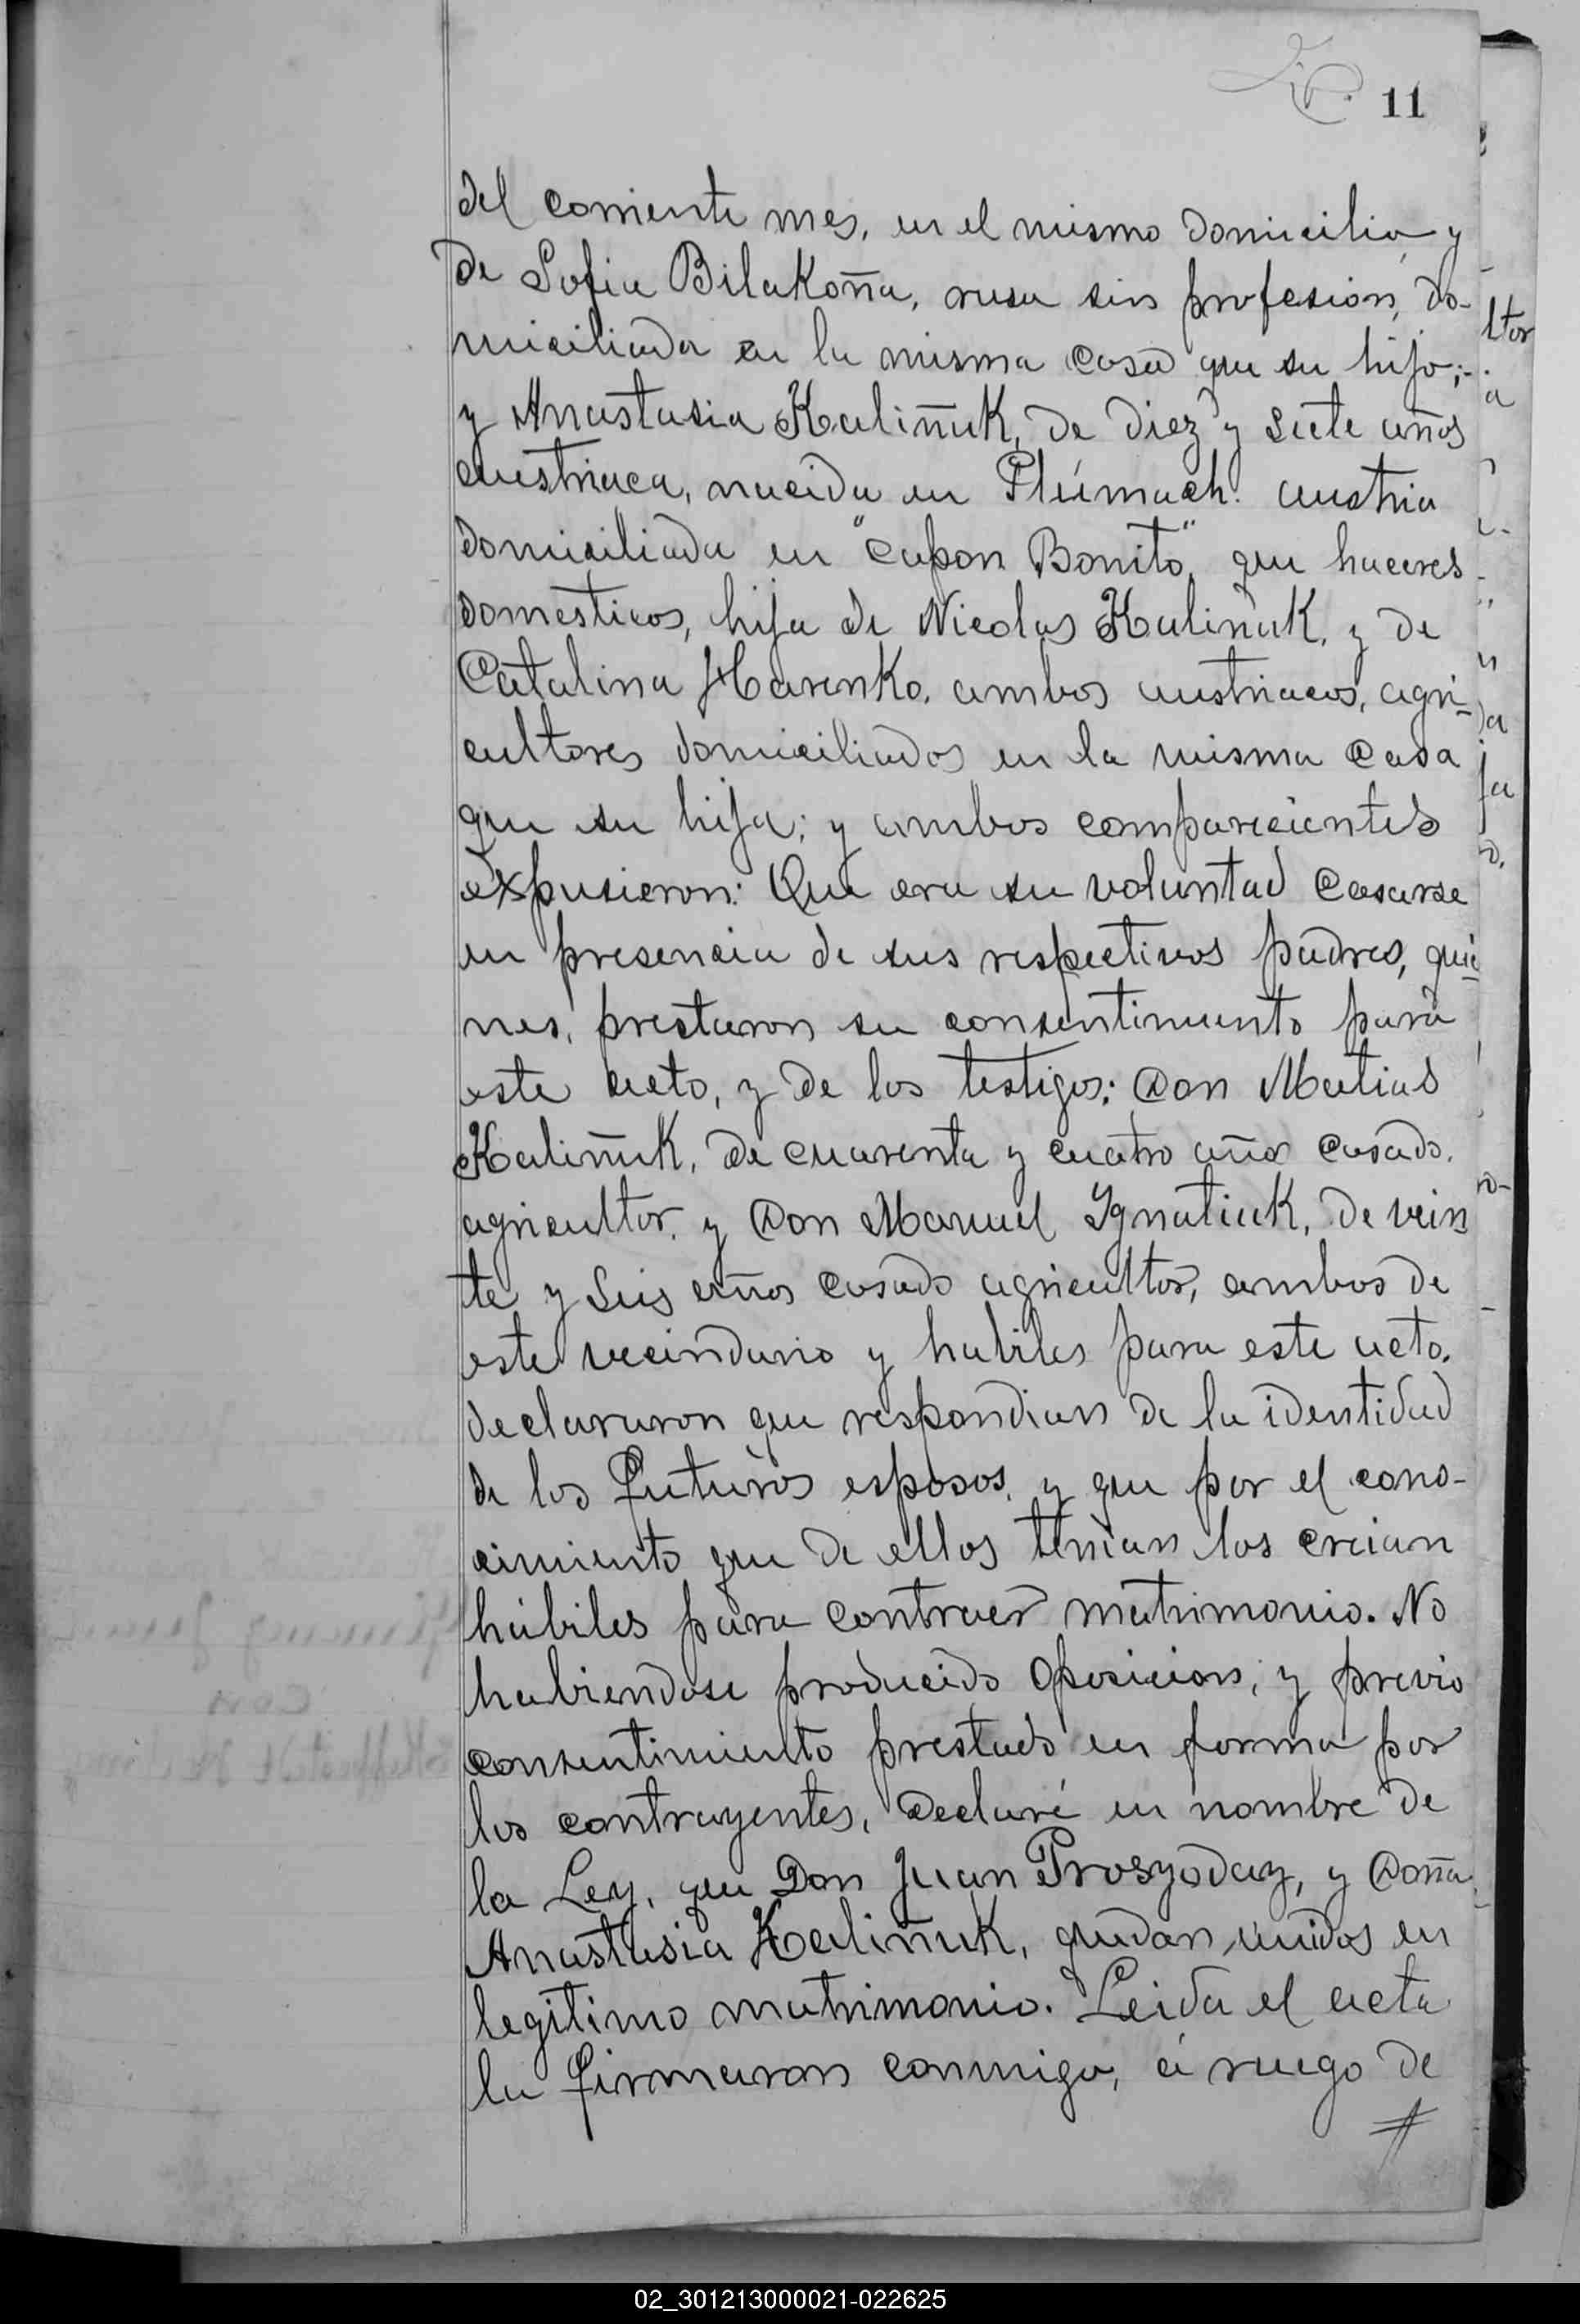 11
del corriente mes, en el mismo domicilio y
de Sofia Bilakoña, rusa sin profesion, do-
miciliada en la misma casa que su hijo;-
y Anastasia Kaliñuk, de diez y siete años
austriaca, nacida en Tlúmach. austria
domiciliada en "Capon Bonito", que haceres
domesticos, hija de Nicolas Kaliñuk, y de
Catalina Harenko, ambos austriacos, agri-
cultores domiciliados en la misma casa
que su hija; y ambos comparecientes
expusieron: Que era su voluntad casarse
en presencia de sus respectivos padres, quie-
nes, prestaron su consentimiento para
este acto, y de los testigos: Don Matias
Kaliñuk, de cuarenta y cuatro años casado,
agricultor, y Don Manuel Ygnatiuk, de vein
te y seis años casado agricultor, ambos de
este vecindario y habiles para este acto,
declararon que respondian de la identidad
de los futuros esposos, y que por el cono-
cimiento que de ellos tenian los creian
hábiles para contraer matrimonio. No
habiendose producido oposicion, y previo
consentimiento prestado en forma por
los contrayentes, declaré en nombre de
la Ley, que Don Juan Prosyodaz, y Doña
Anastasia Kaliñuk, quedan unidos en
legítimo matrimonio. Leida el acta
la firmaron conmigo, á ruego de
02_301213000021-022625